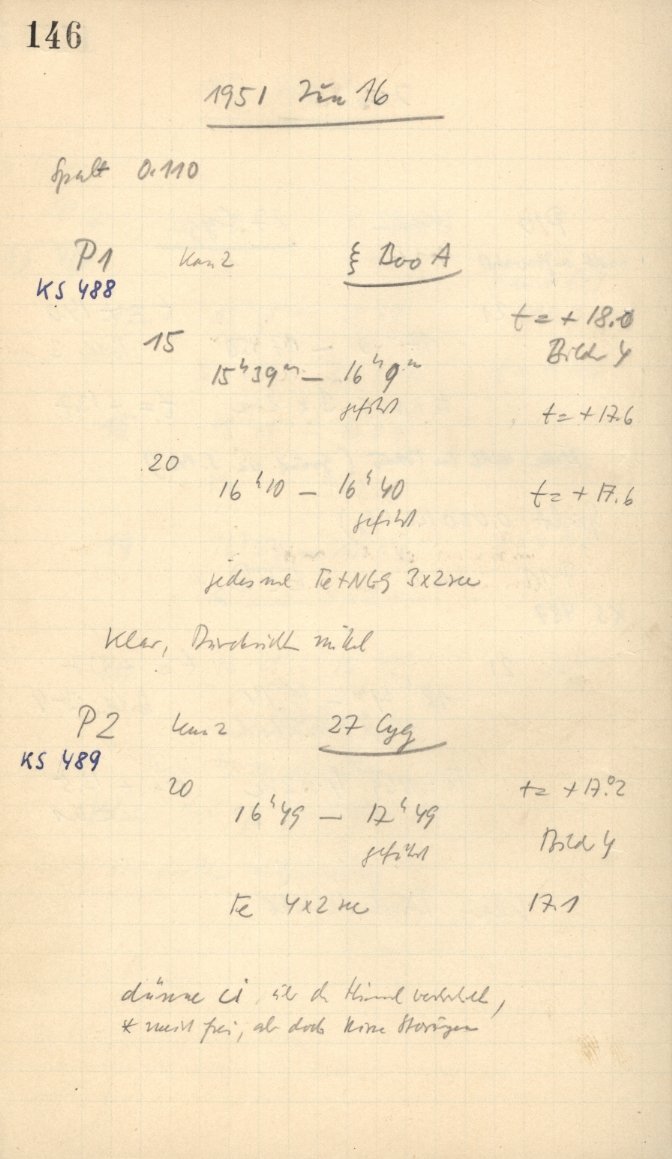 146
1951 Jun 16
Spalt 0.110
P1 Kam 2 ξ Boo A
KS 488
t = + 18.0
15 Bild 4
15ʰ39ᵐ — 16ʰ9ᵐ
geführt t = +17.6
20
16ʰ10 — 16ʰ40 t = + 17.6
geführt
jedesmal Fe+ 3x2sec
klar, Durchsicht mittel
P2 Kam 2 27 Cyg
KS 489
20 t = +17.°2
16ʰ49 — 17ʰ49
geführt Bild 4
Fe 4x2 sec 17.1
dünne Ci über den Himmel
* meist frei, aber doch kurze Störungen